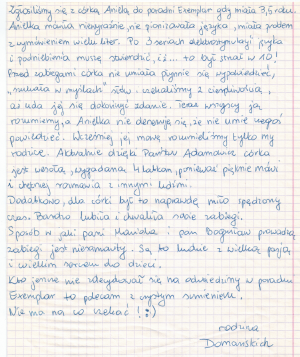 Zgłosiliśmy się z córką Anielką do poradni Exemplar gdy miała 3,5 roku.
Anielka mówiła niewyraźnie, nie pionizowała języka, miała problem
z wymówieniem wielu liter. Po 3 seriach elektrostymulacji języka
i podniebienia muszę stwierdzić, iż... to był strzał w 10!
Przed zabiegami córka nie umiała płynnie się wypowiedzieć,
szukała w myślach słów - czekaliśmy z cierpliwością,
aż uda jej się dokończyć zdanie. Teraz wszyscy ją
rozumiemy, a Anielka nie denerwuje się, że nie umie czegoś
powiedzieć. Wcześniej jej mowę rozumieliśmy tylko my
rodzice. Aktualnie dzięki Państwu Adamowicz córka
jest wesołą, wygadaną 4 latką, ponieważ pięknie mówi
i chętnie rozmawia z innymi ludźmi.
Dodatkowo, dla córki był to naprawdę miło spędzony
czas. Bardzo lubiła i chwaliła sobie zabiegi.
Sposób w jaki pani Mariola i pan Bogusław prowadzą
zabiegi jest niesamowity. Są to ludzie z wielką pasją
i wielkim sercem do dzieci.
Kto jeszcze nie zdecydował się na odwiedziny w poradni
Exemplar to polecam z czystym sumieniem.
Nie ma na co czekać! :)
rodzina
Domańskich